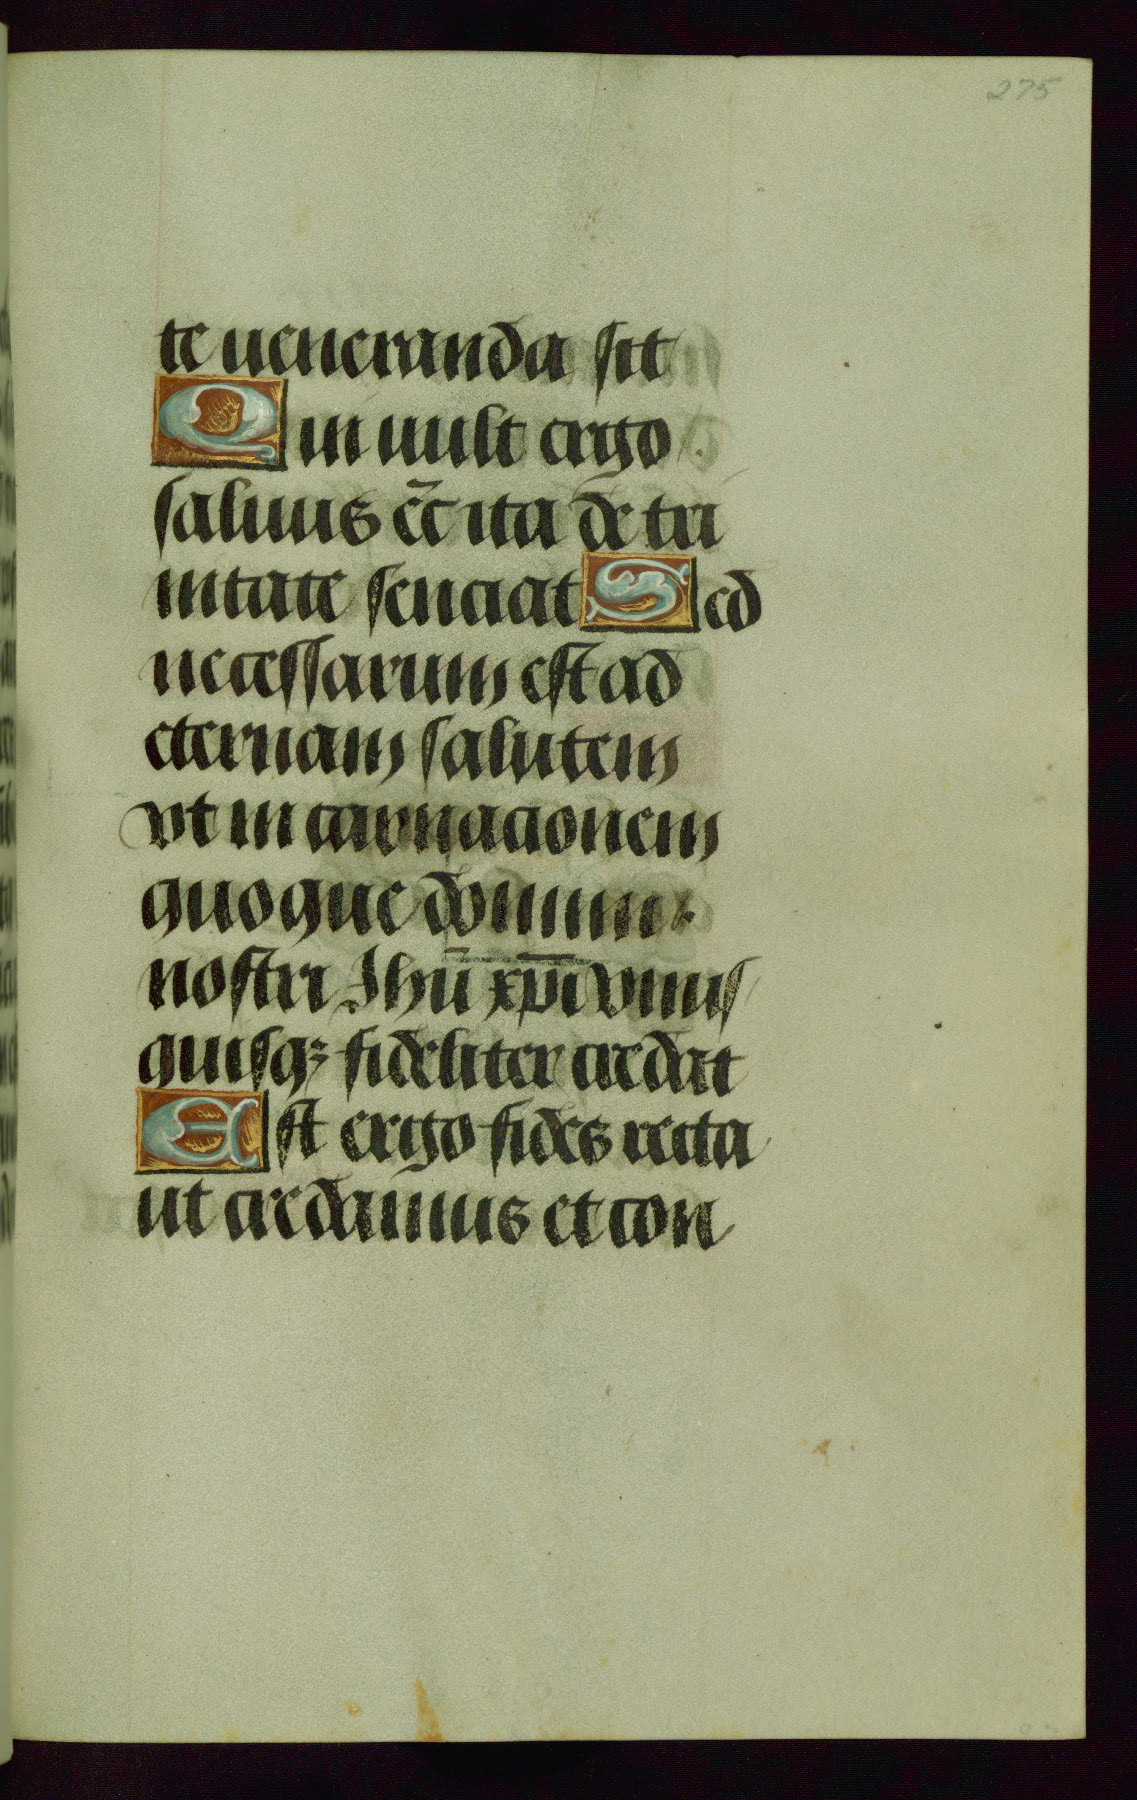 275
te ueneranda sit
Qui uult ergo
saluus eē ita de tri
nitate senciat Sed
necessarium est ad
eternam salutem
vt in carnacionem
quoque domini
nostri Jhū xp̄i vnus
quisqꝫ fideliter credat
Est ergo fides recta
ut credamus et con